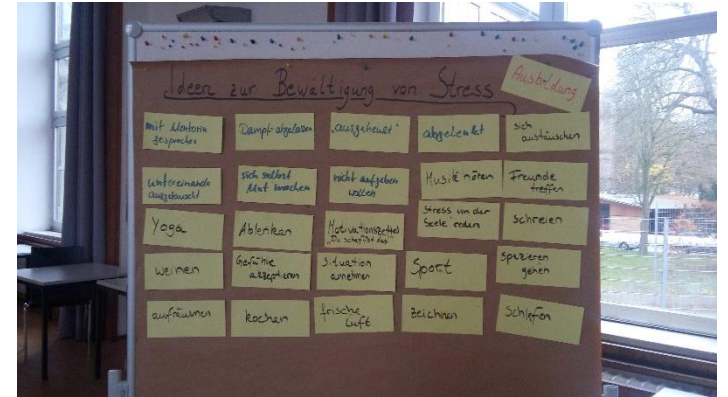 Ideen zur Bewältigung von Stress
Ausbildung
mit Mentorin
gesprochen
Dampf abgelassen
"ausgeheult"
abgelenkt
sich
austauschen
untereinander
ausgetauscht
sich selbst
Mut machen
nicht aufgeben
wollen
Musik hören
Freunde
treffen
Yoga
Ablenken
Motivationszettel
"Du schaffst das"
Stress von der
Seele reden
schreien
weinen
Gefühle
akzeptieren
Situation
annehmen
Sport
spazieren
gehen
aufräumen
kochen
frische
Luft
zeichnen
Schlafen